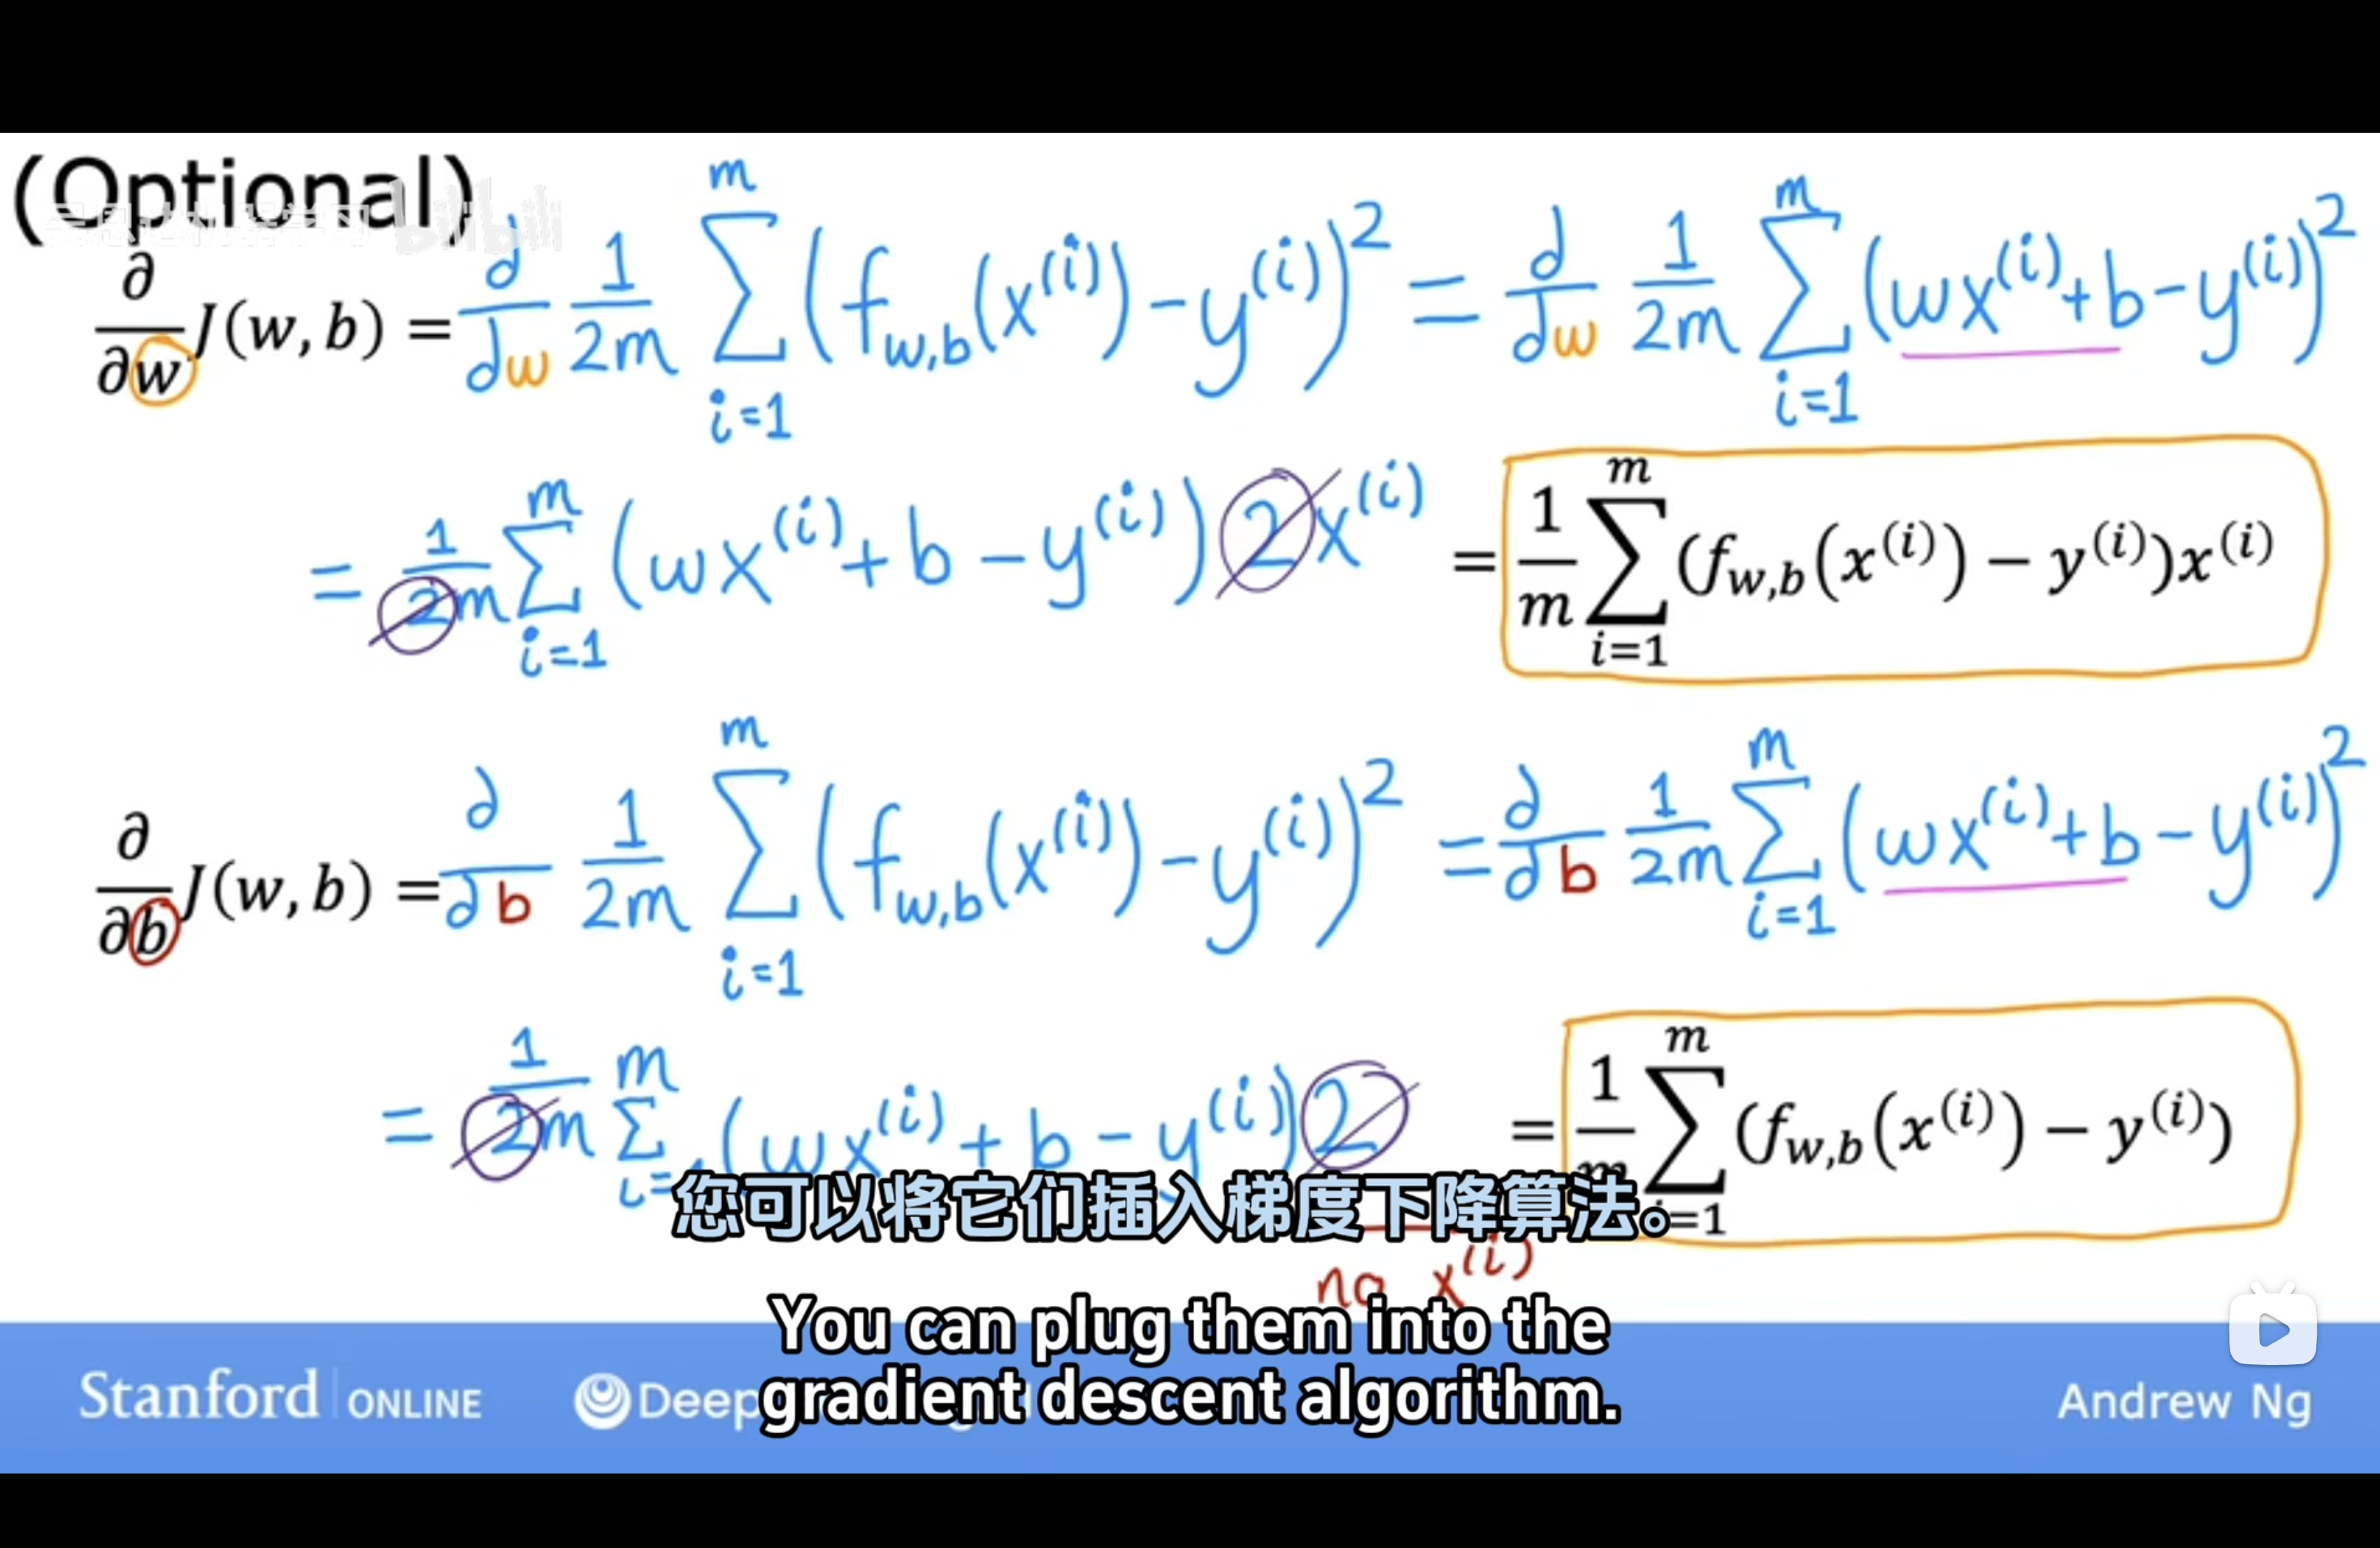 (Optional)
∂/∂w J(w, b) = d/dw 1/2m Σ_{i=1}^{m} (f_{w,b}(x^{(i)}) - y^{(i)})^2 = d/dw 1/2m Σ_{i=1}^{m} (wx^{(i)} + b - y^{(i)})^2
= 1/2m Σ_{i=1}^{m} (wx^{(i)} + b - y^{(i)}) 2x^{(i)} = 1/m Σ_{i=1}^{m} (f_{w,b}(x^{(i)}) - y^{(i)})x^{(i)}
∂/∂b J(w, b) = ∂/∂b 1/2m Σ_{i=1}^{m} (f_{w,b}(x^{(i)}) - y^{(i)})^2 = ∂/∂b 1/2m Σ_{i=1}^{m} (wx^{(i)} + b - y^{(i)})^2
= 1/2m Σ_{i=1}^{m} (wx^{(i)} + b - y^{(i)}) 2 = 1/m Σ_{i=1}^{m} (f_{w,b}(x^{(i)}) - y^{(i)})
您可以将它们插入梯度下降算法。
no x^{(i)}
You can plug them into the
gradient descent algorithm.
Stanford ONLINE Deep Andrew Ng